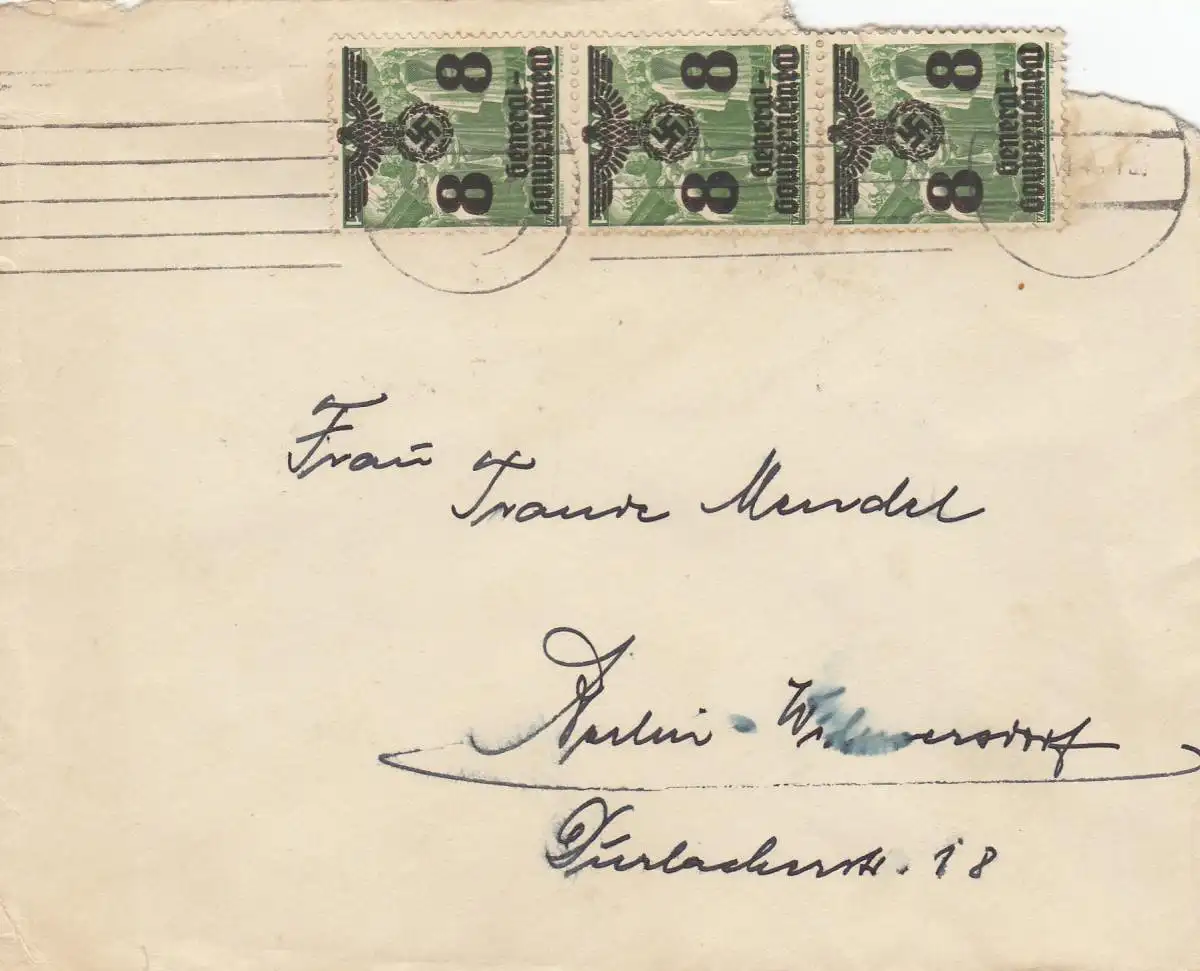 8 8 General-Gouvernement
8 8 General-Gouvernement
8 8 General-Gouvernement
Frau
Traude Mendel
Berlin-Wilmersdorf
Durlacherstr. 18